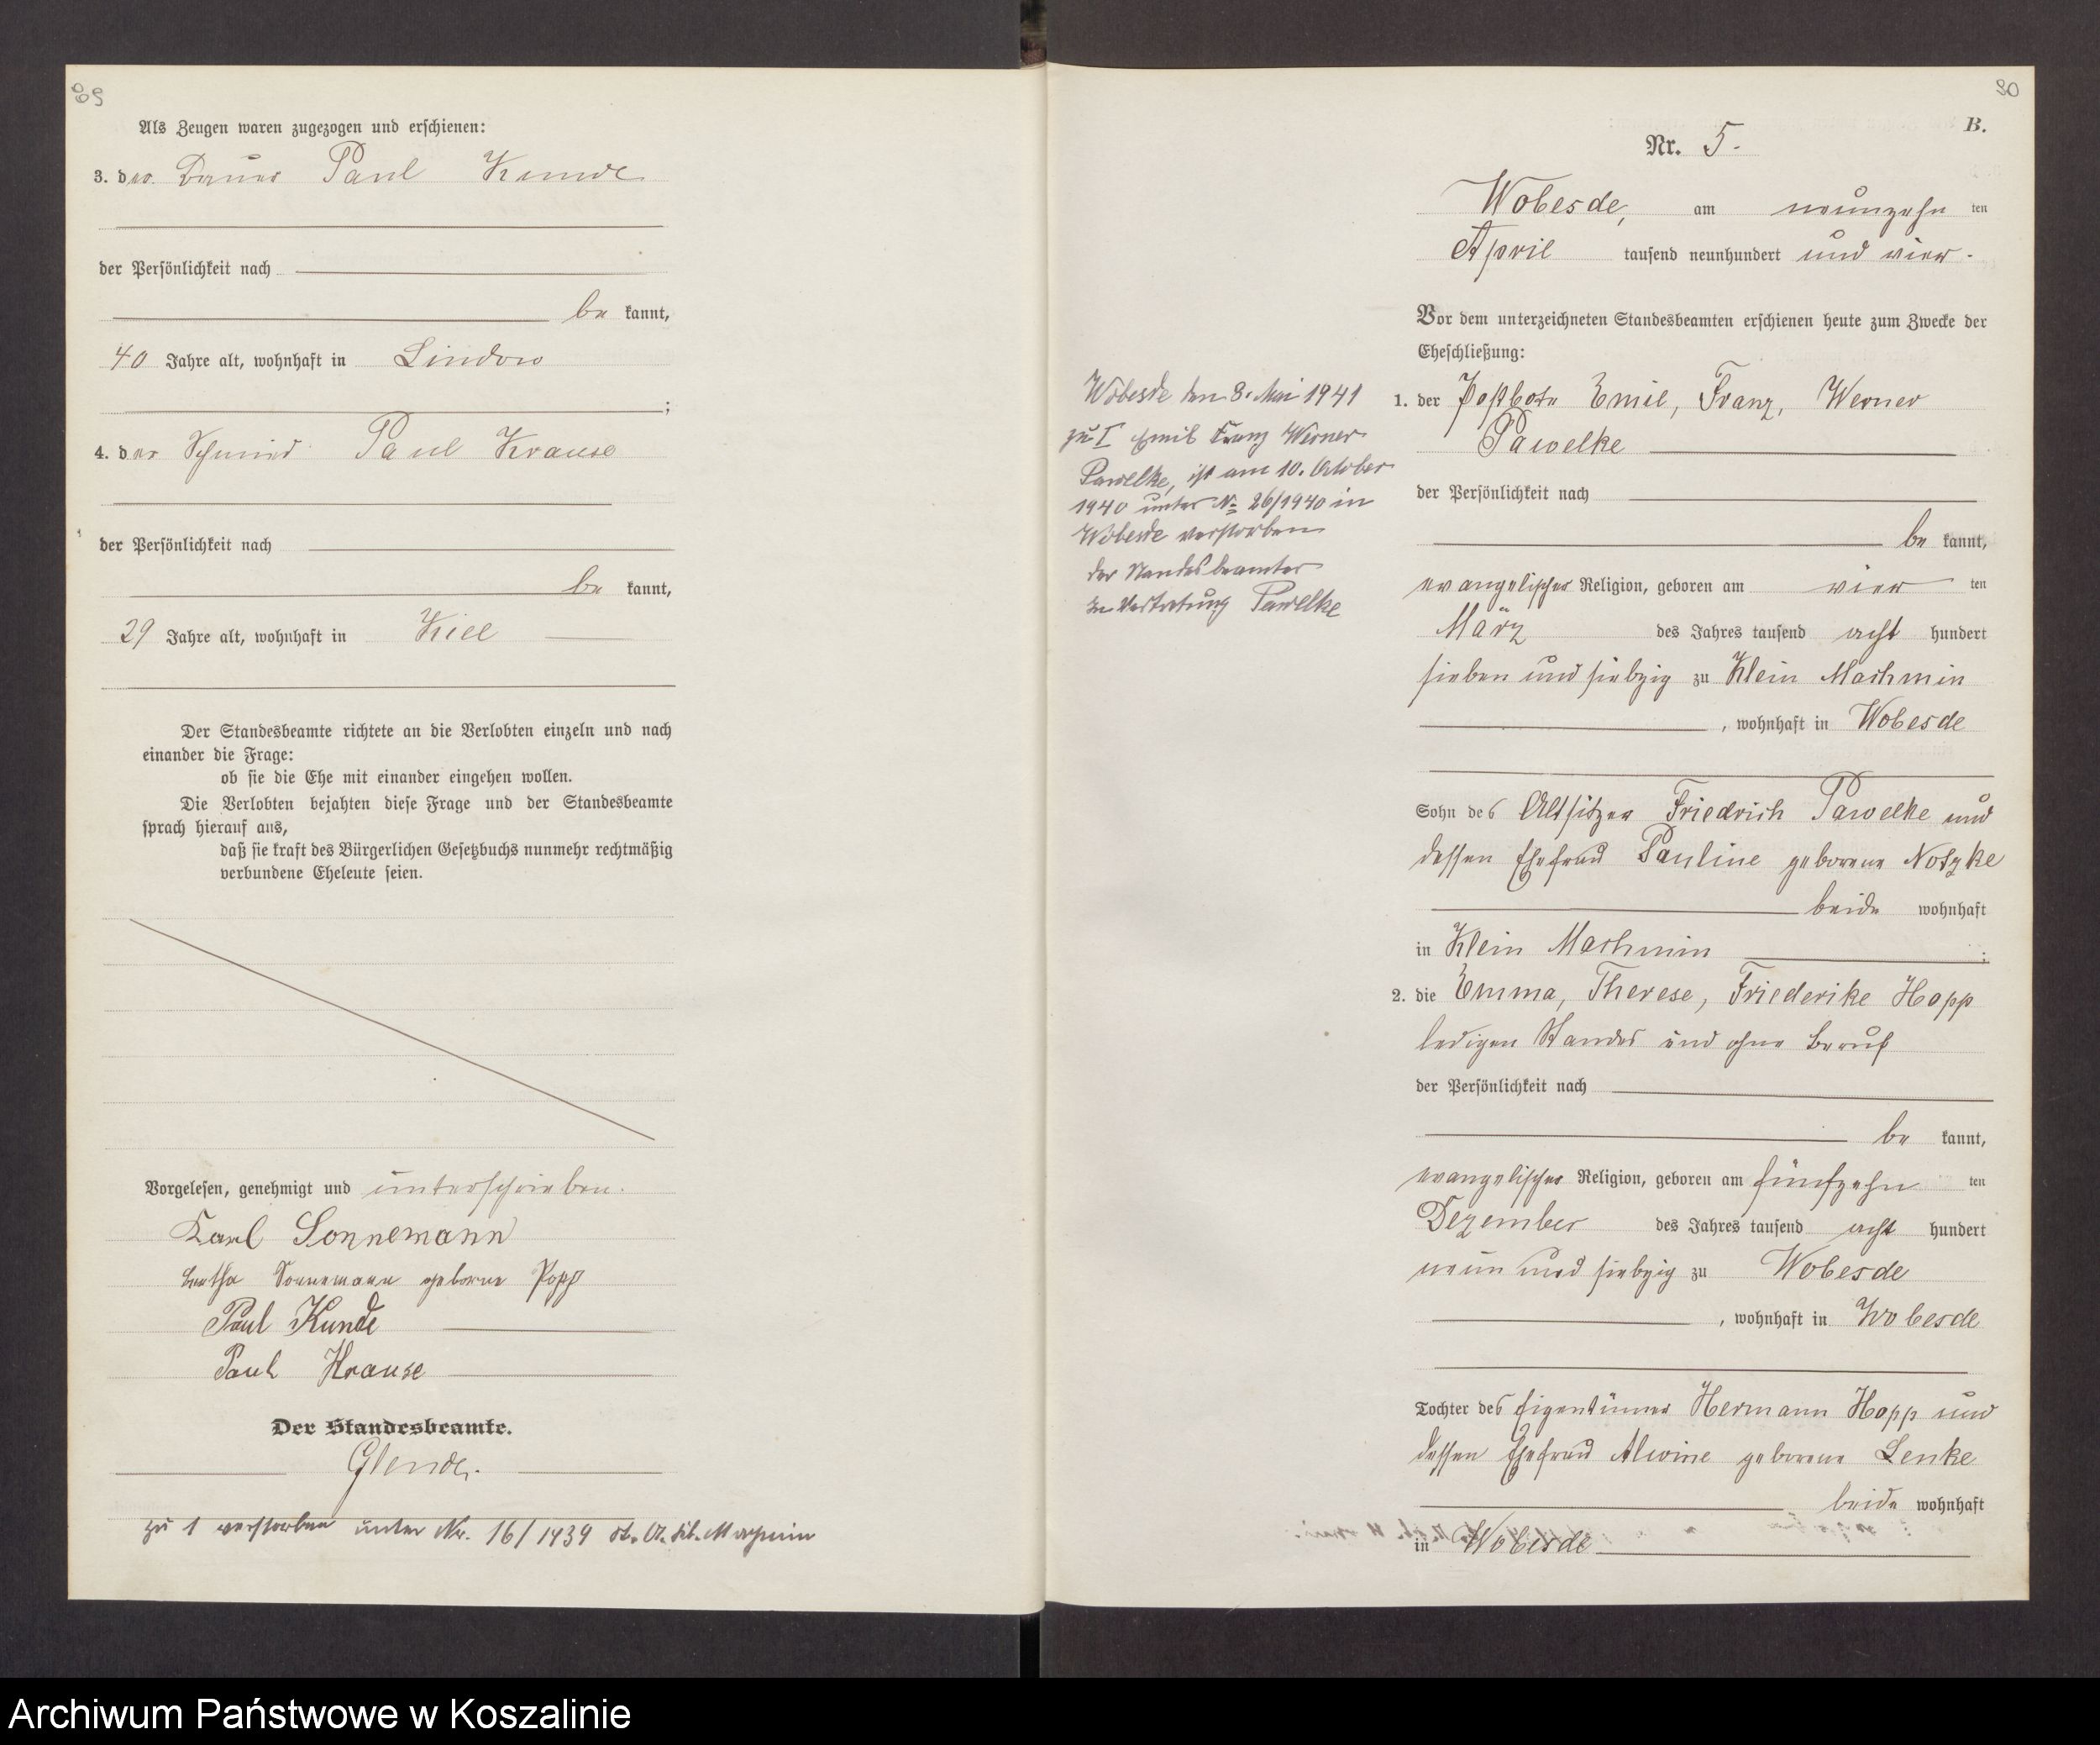 89
Als Zeugen waren zugezogen und erschienen:
3. der Bauer Paul Kunde
der Persönlichkeit nach
be kannt,
40 Jahre alt, wohnhaft in Lindow
;
4. der Schmied Paul Krause
der Persönlichkeit nach
be kannt,
29 Jahre alt, wohnhaft in Kiel
Der Standesbeamte richtete an die Verlobten einzeln und nach
einander die Frage:
ob sie die Ehe mit einander eingehen wollen.
Die Verlobten bejahten diese Frage und der Standesbeamte
sprach hierauf aus,
daß sie kraft des Bürgerlichen Gesetzbuchs nunmehr rechtmäßig
verbundene Eheleute seien.
Vorgelesen, genehmigt und unterschrieben.
Karl Sonnemann
Bertha Sonnemann geborne Popp
Paul Kunde
Paul Krause
Der Standesbeamte.
Glende.
zu 1 verstorben unter Nr. 16/1939 St. A.
90
B.
Nr. 5.
Wobesde, am neunzehn ten
April tausend neunhundert und vier.
Vor dem unterzeichneten Standesbeamten erschienen heute zum Zwecke der
Eheschließung:
1. der Postbote Emil, Franz, Werner
Pawelke
der Persönlichkeit nach
be kannt,
evangelischer Religion, geboren am vier ten
März des Jahres tausend acht hundert
sieben und siebzig zu Klein Machmin
, wohnhaft in Wobesde
Sohn des Altsitzer Friedrich Pawelke und
dessen Ehefrau Pauline geborene Notzke
beide wohnhaft
in Klein Machmin ;
2. die Emma, Therese, Friederike Hopp
ledigen Standes und ohne Beruf
der Persönlichkeit nach
be kannt,
evangelischer Religion, geboren am fünfzehn ten
Dezember des Jahres tausend acht hundert
neun und siebzig zu Wobesde
, wohnhaft in Wobesde
Tochter des Eigentümer Hermann Hopp und
dessen Ehefrau Alwine geborene Lenke
beide wohnhaft
in Wobesde
Wobesde den 8. Mai 1941
zu I Emil Franz Werner
Pawelke, ist am 10. Oktober
1940 unter No 26/1940 in
Wobesde verstorben
der Standesbeamter
In Vertretung Pawelke
Archiwum Państwowe w Koszalinie